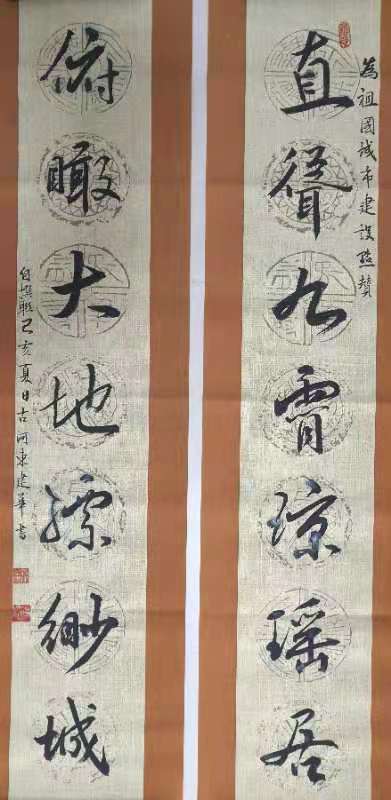 為祖國城市建设點赞
直聳九霄琼瑶居
俯瞰大地縹緲城
自撰联己亥夏日古河東建華書